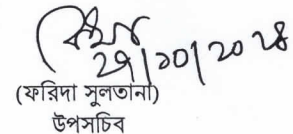 ২৯/১০/২০২৪
(ফরিদা সুলতানা)
উপসচিব